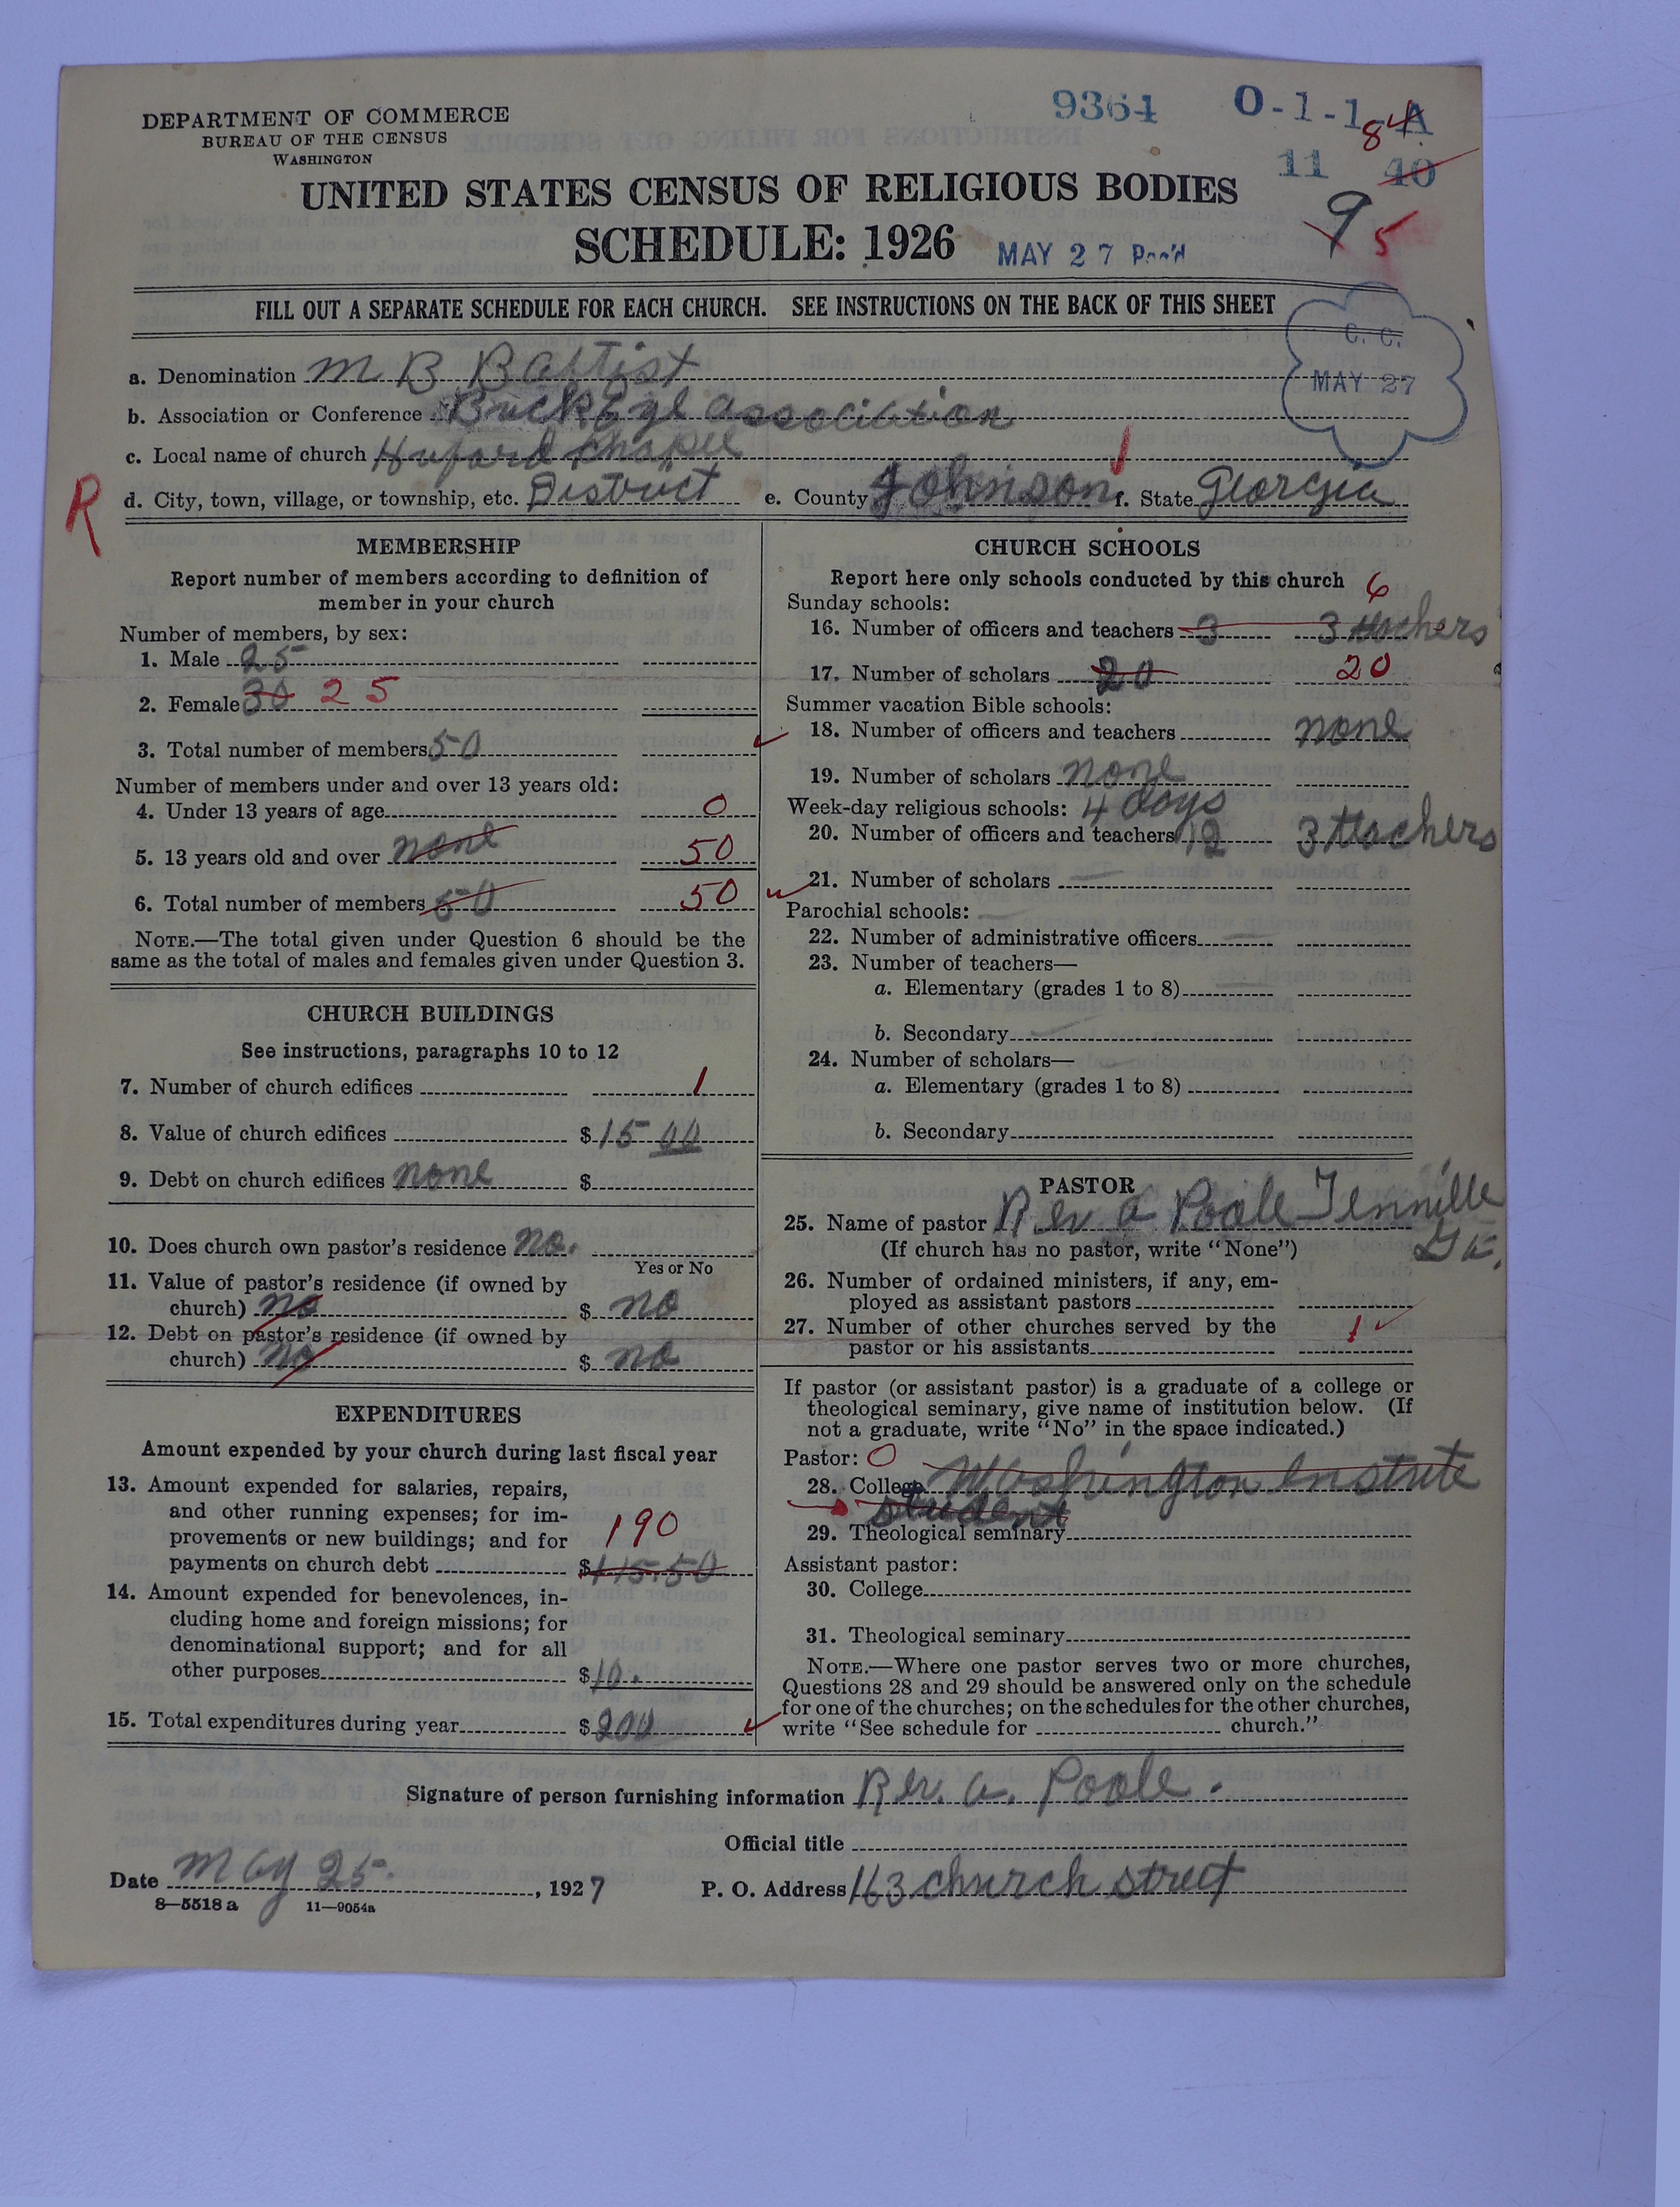 DEPARTMENT OF COMMERCE
BUREAU OF THE CENSUS
WASHINGTON
9364 O-1-1-A
84
11 40
UNITED STATES CENSUS OF RELIGIOUS BODIES
SCHEDULE: 1926
MAY 27 Rec'd
9 5
FILL OUT A SEPARATE SCHEDULE FOR EACH CHURCH. SEE INSTRUCTIONS ON THE BACK OF THIS SHEET
C. C.
MAY 27
a. Denomination M B Baptist
b. Association or Conference BuckEye association
c. Local name of church Huford Chapel
R
d. City, town, village, or township, etc. District e. County Johnson f. State Georgia
MEMBERSHIP
Report number of members according to definition of
member in your church
Number of members, by sex:
1. Male 25
2. Female 30 25
3. Total number of members 50
Number of members under and over 13 years old:
4. Under 13 years of age 0
5. 13 years old and over none 50
6. Total number of members 50 50
NOTE.—The total given under Question 6 should be the
same as the total of males and females given under Question 3.
CHURCH BUILDINGS
See instructions, paragraphs 10 to 12
7. Number of church edifices 1
8. Value of church edifices $ 15 00
9. Debt on church edifices none $
10. Does church own pastor's residence no.
Yes or No
11. Value of pastor's residence (if owned by
church) no $ no
12. Debt on pastor's residence (if owned by
church) no $ no
EXPENDITURES
Amount expended by your church during last fiscal year
13. Amount expended for salaries, repairs,
and other running expenses; for im-
provements or new buildings; and for 190
payments on church debt $ 115.50
14. Amount expended for benevolences, in-
cluding home and foreign missions; for
denominational support; and for all
other purposes $ 10.
15. Total expenditures during year $ 200
CHURCH SCHOOLS
Report here only schools conducted by this church
6
Sunday schools:
16. Number of officers and teachers 3 3 teachers
17. Number of scholars 20 20
Summer vacation Bible schools:
18. Number of officers and teachers none
19. Number of scholars none
Week-day religious schools: 4 days
20. Number of officers and teachers 12 3 teachers
21. Number of scholars
Parochial schools:
22. Number of administrative officers
23. Number of teachers—
a. Elementary (grades 1 to 8)
b. Secondary
24. Number of scholars—
a. Elementary (grades 1 to 8)
b. Secondary
PASTOR
25. Name of pastor Rev a Poole Tennille
Ga.
(If church has no pastor, write "None")
26. Number of ordained ministers, if any, em-
ployed as assistant pastors
27. Number of other churches served by the
pastor or his assistants 1
If pastor (or assistant pastor) is a graduate of a college or
theological seminary, give name of institution below. (If
not a graduate, write "No" in the space indicated.)
Pastor: 0
28. College Washington Instute
student
29. Theological seminary
Assistant pastor:
30. College
31. Theological seminary
NOTE.—Where one pastor serves two or more churches,
Questions 28 and 29 should be answered only on the schedule
for one of the churches; on the schedules for the other churches,
write "See schedule for church."
Signature of person furnishing information Rev. a. Poole.
Official title
Date May 25. , 1927 P. O. Address 163 church street
8—5518 a 11—9054a